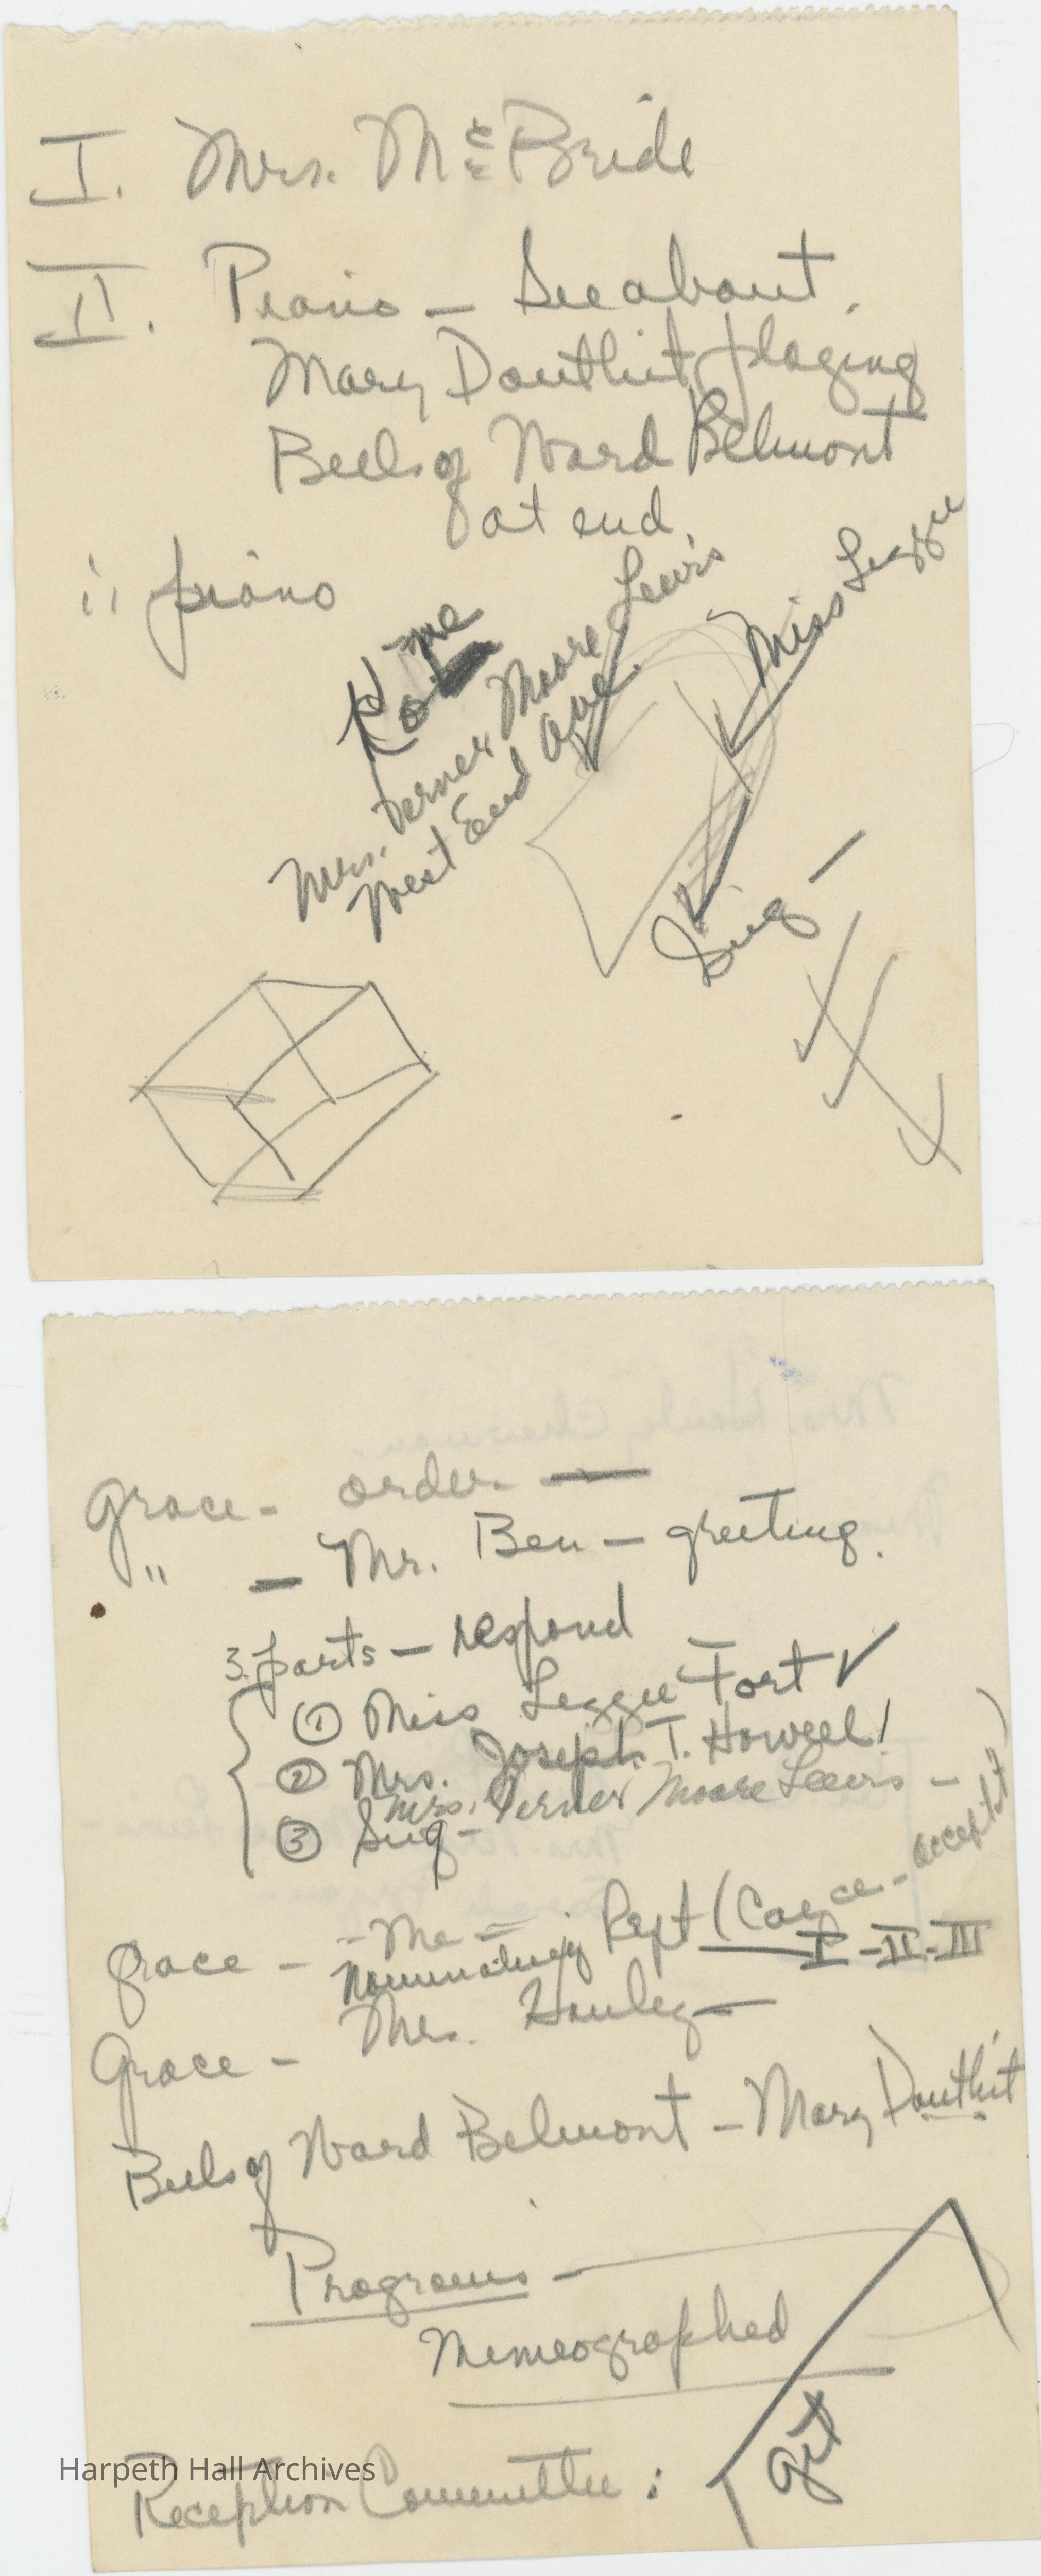 I. Mrs. McBride
II. Piano — See about
Mary Douthit playing
Bells of Ward Belmont
at end.
piano
me
Mrs. Verner Moore Lewis
West End Ave.
Miss Leggee
Sing —
Grace - order —
" — Mr. Ben — greeting.
3 parts — respond
① Miss Leggee Fort ✓
② Mrs. Joseph T. Howell!
Mrs. Verner Moore Lewis —
③ Sing —
accept it)
Grace — - Me -
Nominating Rept (
I - II - III
Grace — Mrs.
Bells of Ward Belmont — Mary Douthit
Programs —
Memeographed
get
Harpeth Hall Archives
Reception Committee: